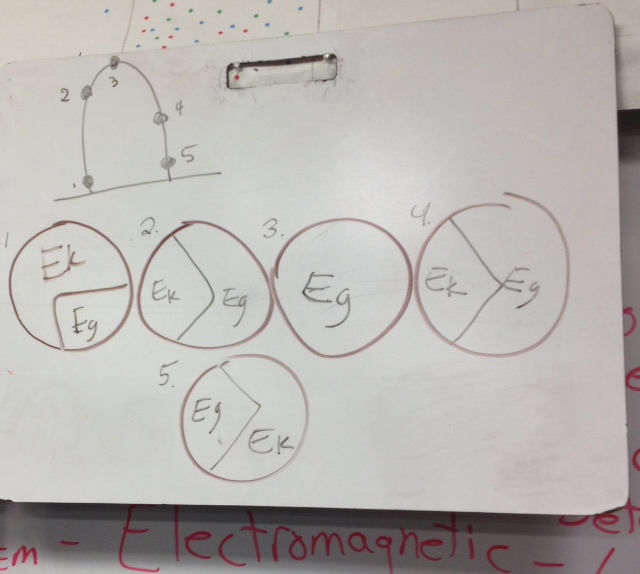 3
2
4
5
1
1 2. 3. 4.
Ek Eg
Ek Eg
Eg
Ek Eg
5.
Eg Ek
Em - Electromagnetic -